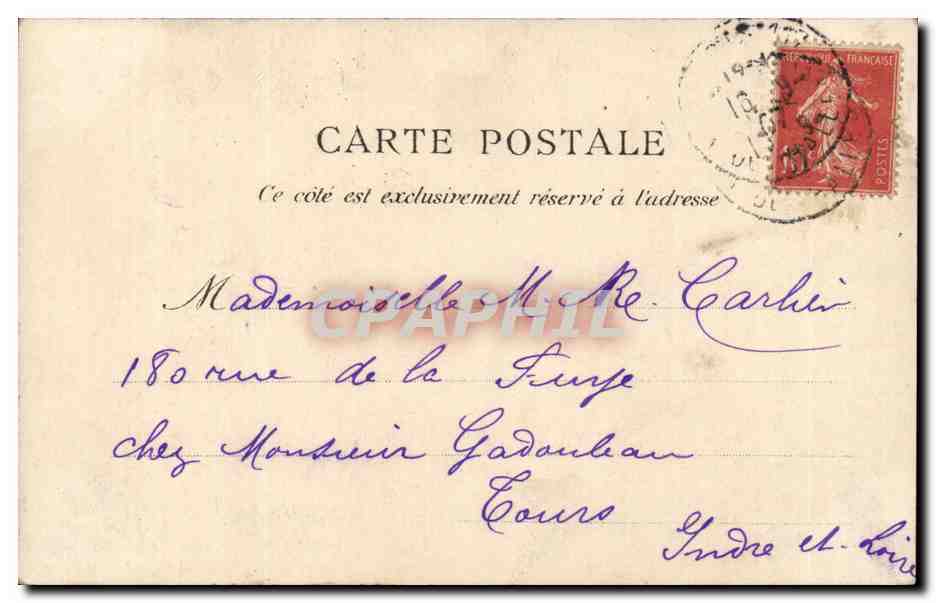 CARTE POSTALE
Ce côté est exclusivement réservé à l'adresse
RÉPUBLIQUE FRANÇAISE
POSTES
Mademoiselle M. Re. Carlier
180 rue de la
chez Monsieur Gadouleau
Tours
Indre et-Loire
CPAPHIL